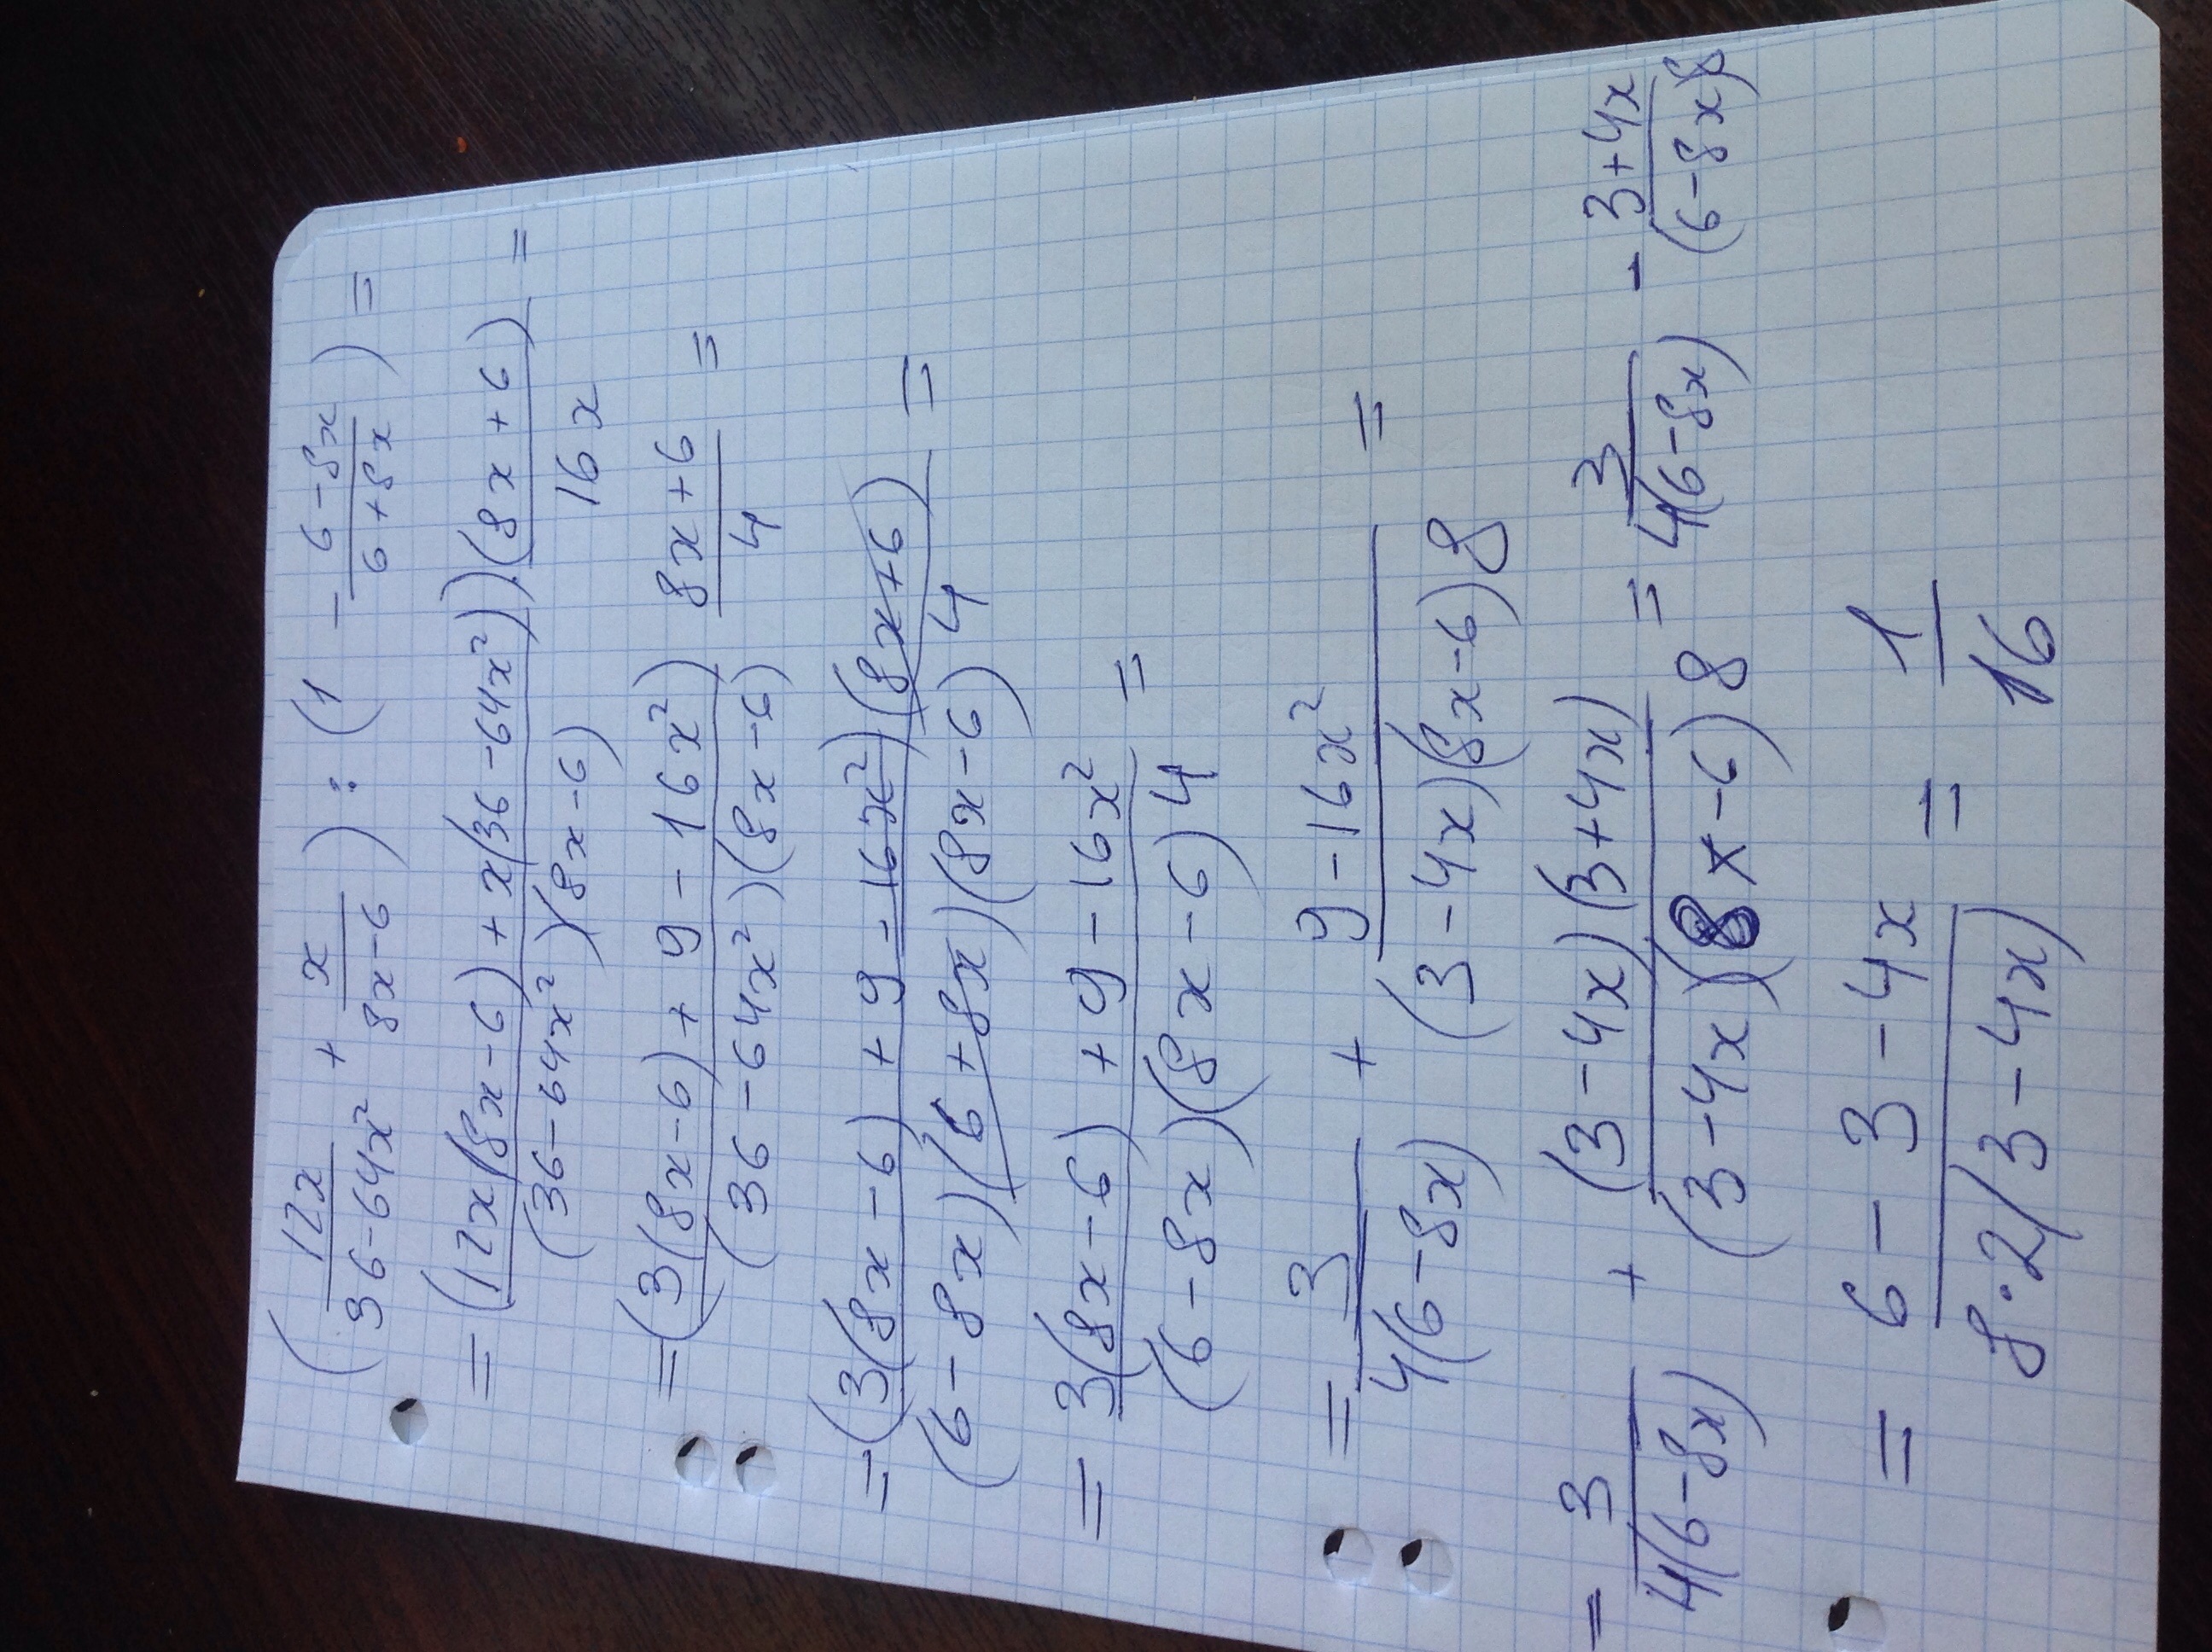 (12x/(36-64x²) + x/(8x-6)) : (1 - (6-8x)/(6+8x)) =
= (12x(8x-6)+x(36-64x²))(8x+6) / (36-64x²)(8x-6) 16x =
= (3(8x-6)+9-16x²)/(36-64x²)(8x-6) (8x+6)/4 =
= (3(8x-6)+9-16x²)(8x+6) / (6-8x)(6+8x)(8x-6)4 =
= 3(8x-6)+9-16x² / (6-8x)(8x-6)4 =
= 3/4(6-8x) + 9-16x²/(3-4x)(8x-6)8 =
= 3/4(6-8x) + (3-4x)(3+4x)/(3-4x)(8x-6)8 = 3/4(6-8x) - 3+4x/(6-8x)8
= 6-3-4x/8·2(3-4x) = 1/16